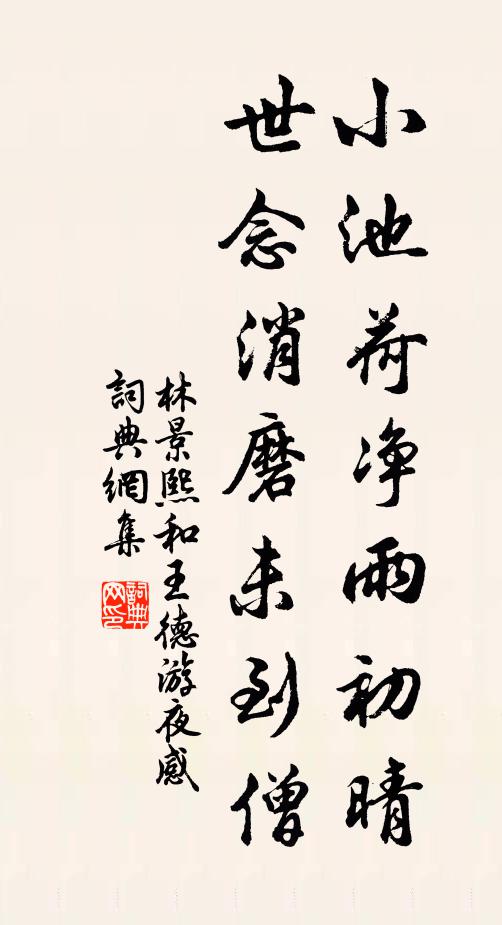 小池荷净雨初晴
世念消磨未到僧
林景熙和王德游夜感
詞典網集
詞典网印